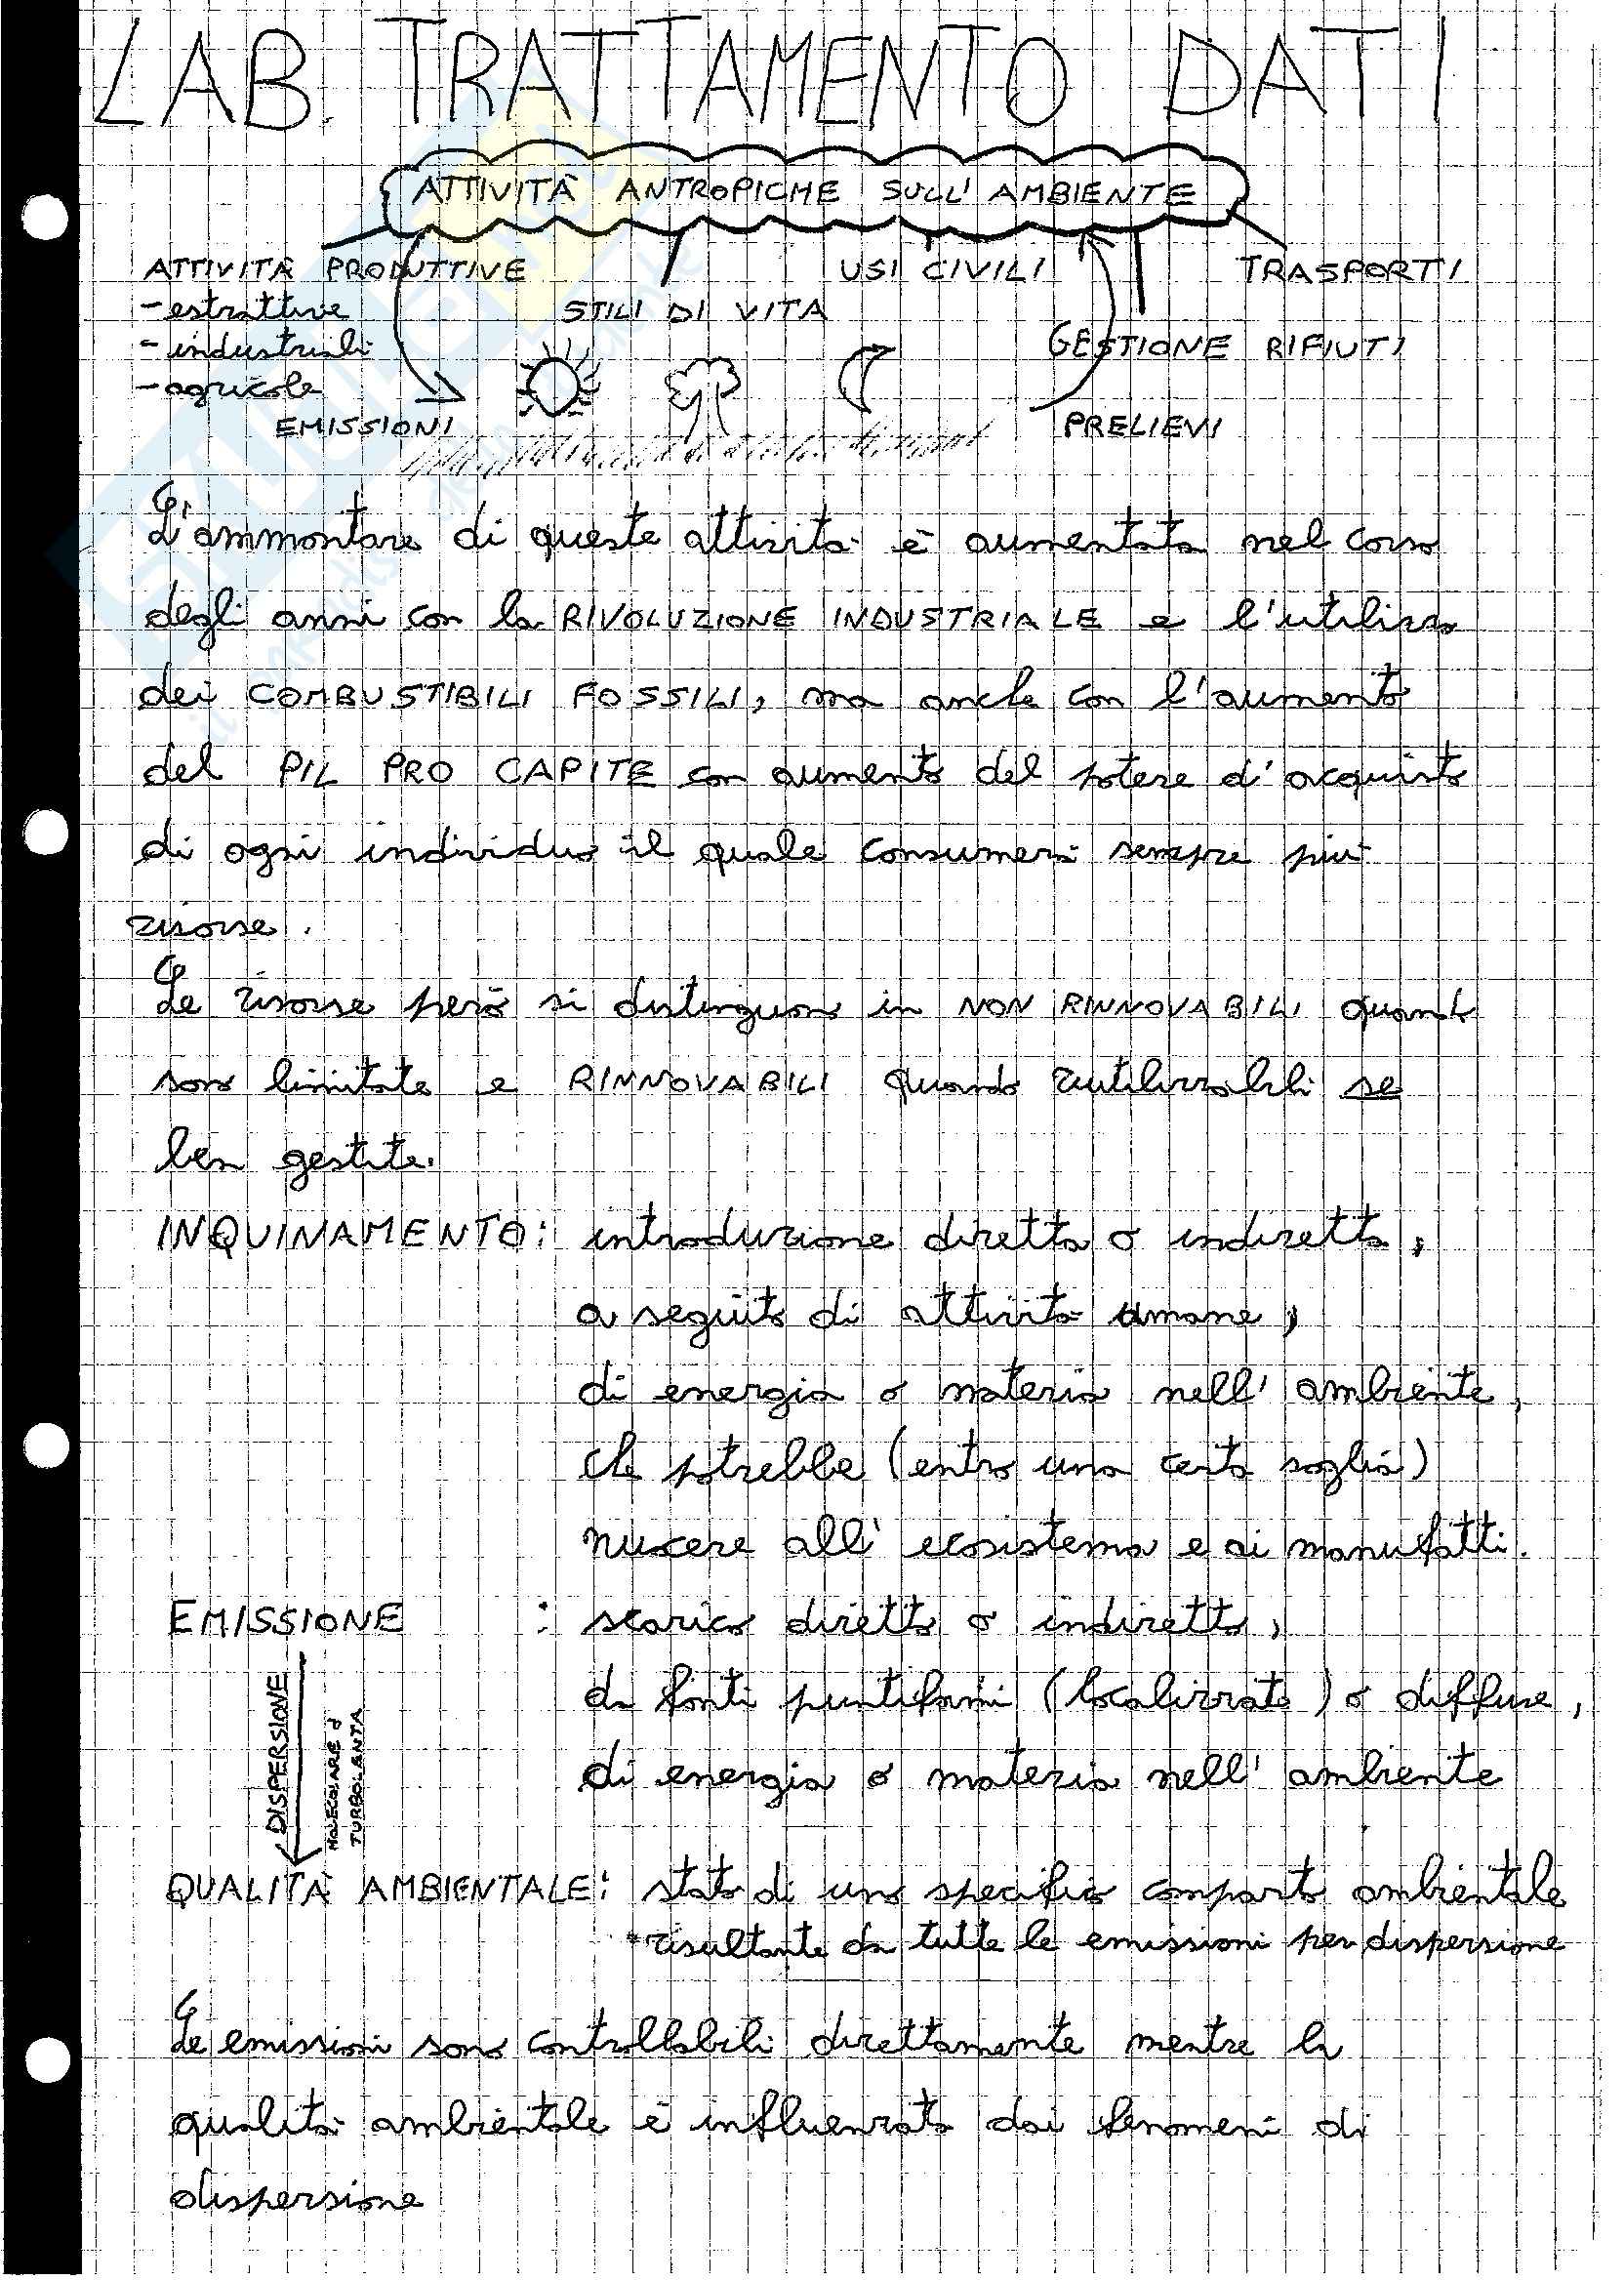 LAB. TRATTAMENTO DATI
ATTIVITÀ ANTROPICHE SULL'AMBIENTE
ATTIVITÀ PRODUTTIVE
- estrattive
- industriali
- agricole
STILI DI VITA
USI CIVILI
GESTIONE RIFIUTI
TRASPORTI
EMISSIONI
PRELIEVI
L'ammontare di queste attività è aumentata nel corso
degli anni con la RIVOLUZIONE INDUSTRIALE e l'utilizzo
dei COMBUSTIBILI FOSSILI, ma anche con l'aumento
del PIL PRO CAPITE con aumento del potere d'acquisto
di ogni individuo il quale consumerà sempre più
risorse.
Le risorse però si distinguono in NON RINNOVABILI quando
sono limitate e RINNOVABILI quando riutilizzabili se
ben gestite.
INQUINAMENTO: introduzione diretta o indiretta,
a seguito di attività umane,
di energia o materia nell'ambiente,
che potrebbe (entro una certa soglia)
nuocere all'ecosistema e ai manufatti.
EMISSIONE : scarico diretto o indiretto,
da fonti puntiformi (localizzate) o diffuse,
di energia o materia nell'ambiente
DISPERSIONE
MOLECOLARE o
TURBOLENTA
QUALITÀ AMBIENTALE: stato di uno specifico comparto ambientale
risultante da tutte le emissioni per dispersione
Le emissioni sono controllabili direttamente mentre la
qualità ambientale è influenzata dai fenomeni di
dispersione